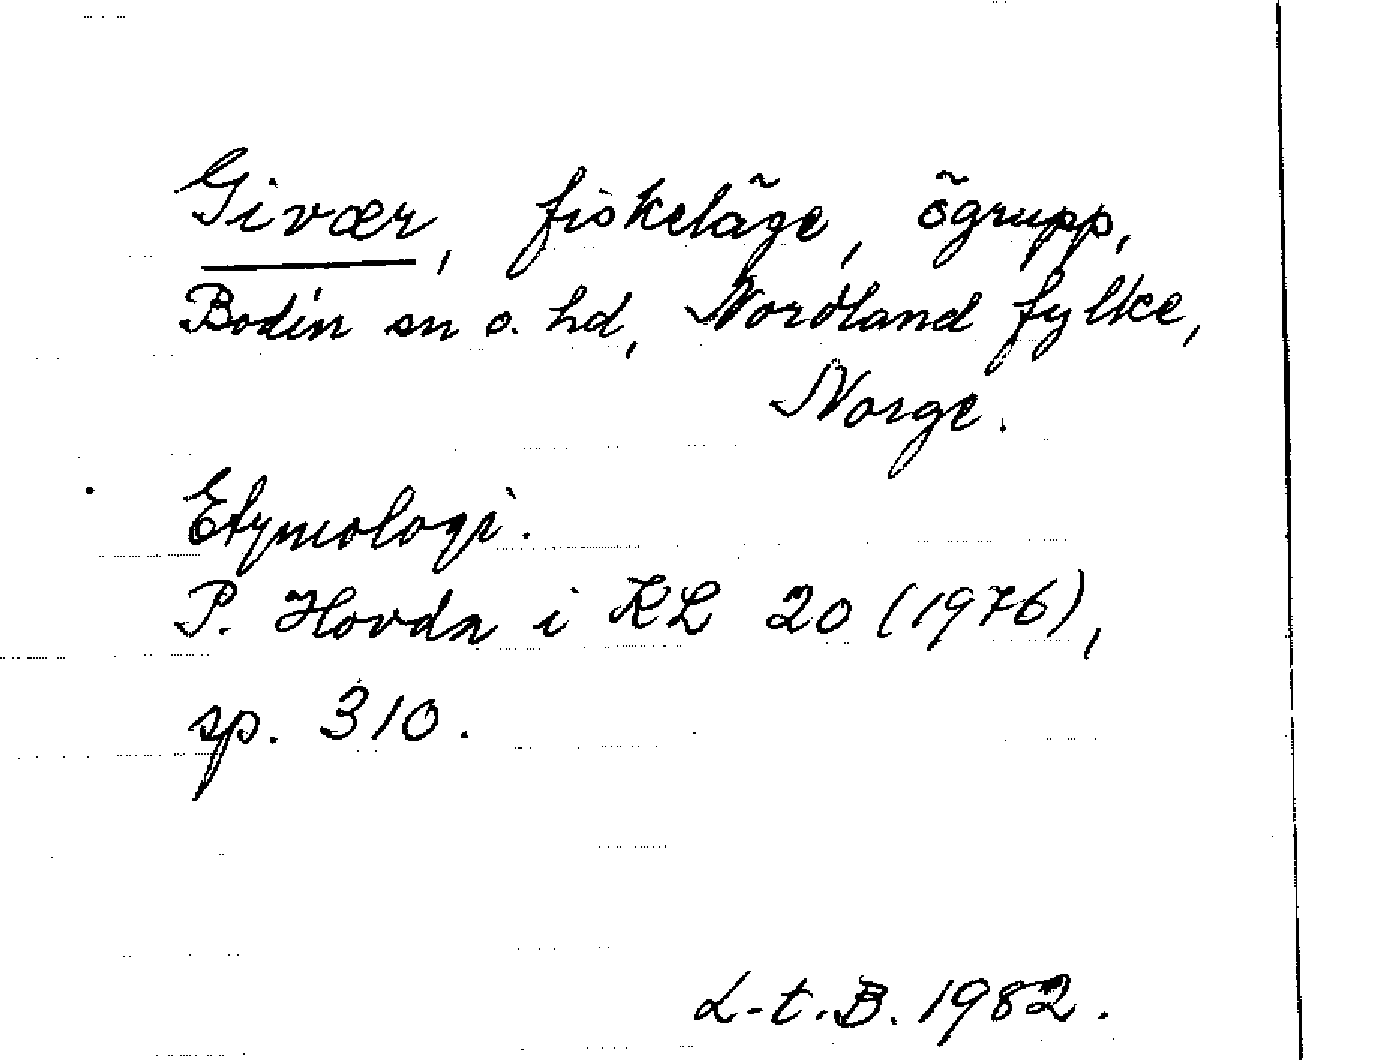 Givær, fiskeläge, ögrupp,
Bodin sn o. hd, Nordland fylke,
Norge.
Etymologi.
P. Hovda i KL 20 (1976),
sp. 310.
L-t.B. 1982.